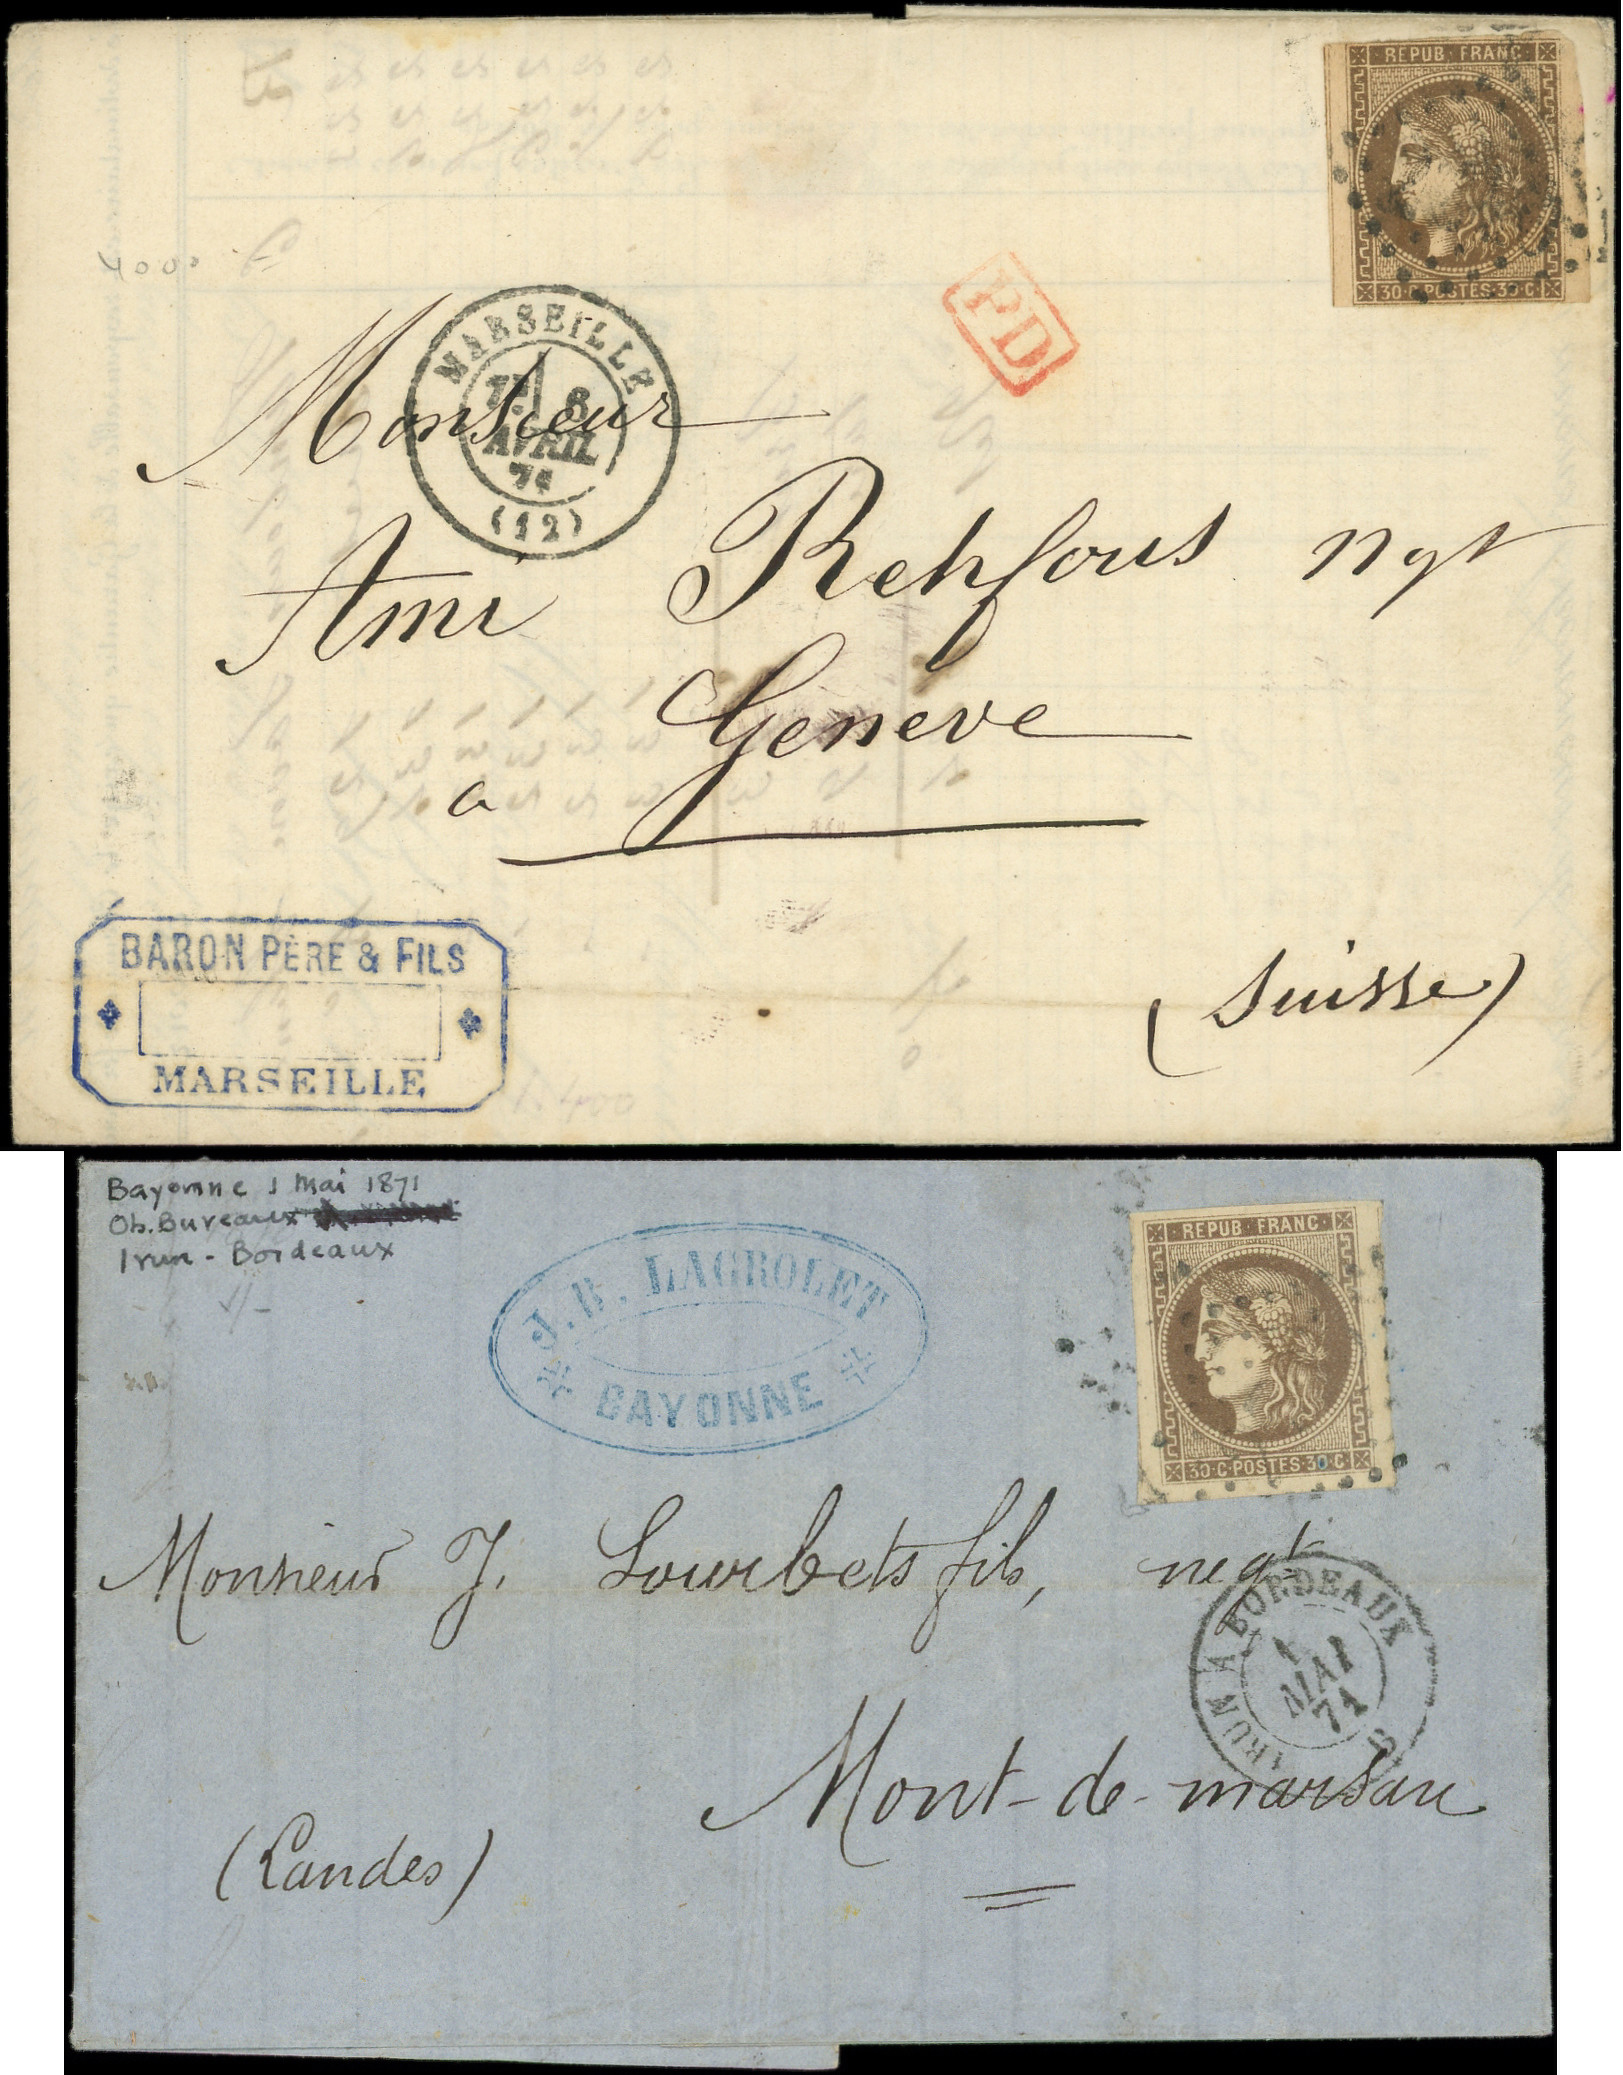 REPUB·FRANC·
30·C·POSTES·30·C
PD
MARSEILLE
8
AVRIL
71
(12)
Monsieur
Ami Rehfous ngt
a Geneve
(Suisse)
BARON PÈRE & FILS
MARSEILLE
Bayonne 1 Mai 1871
Ob. Bureaux
Irun - Bordeaux
J.B. LAGROLET
BAYONNE
REPUB·FRANC·
30·C·POSTES·30·C
Monsieur J. Lourbets fils, negt
IRUN A BORDEAUX
1
MAI
71
Mont-de-marsan
(Landes)